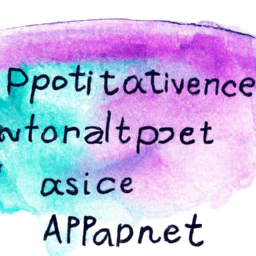 Ppotitativence
wtoraltpset
asice
APPapnet